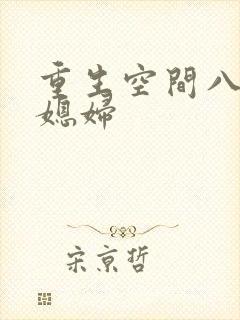 重生空間八
媳婦
宋京哲